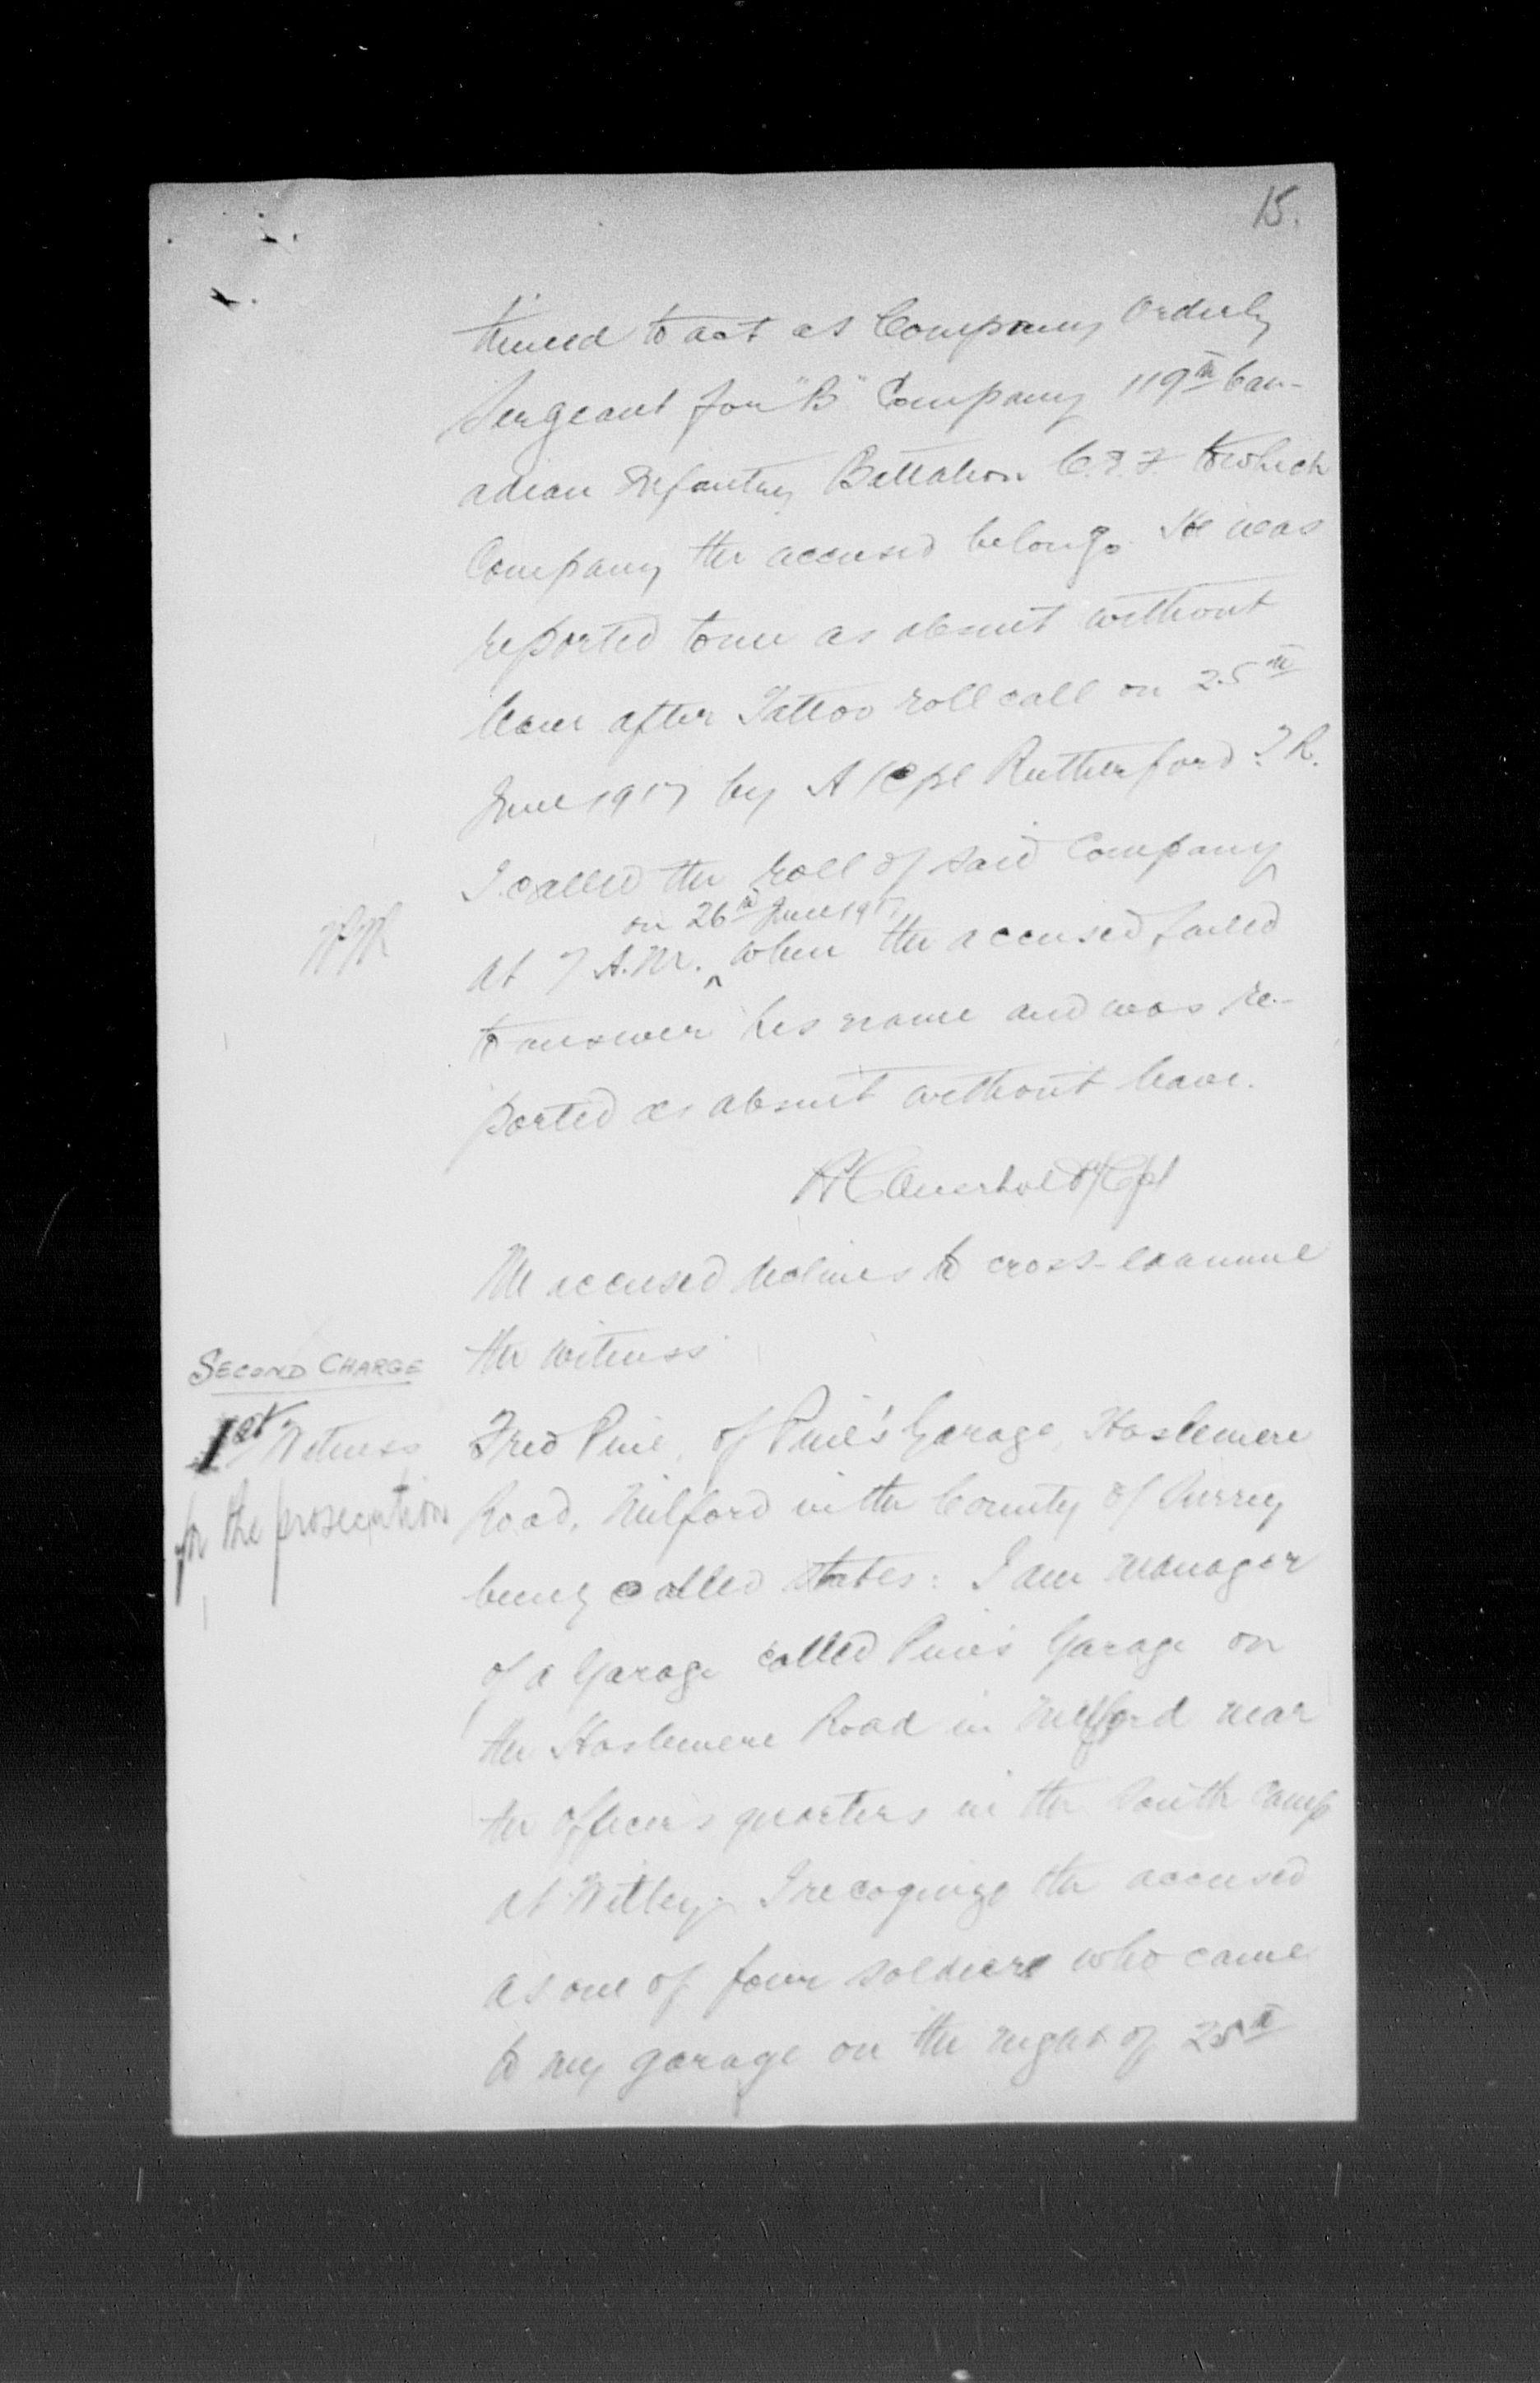 15.
tinued to act as Company Orderly
Sergeant for "B" Company 119th Can-
adian Infantry Battalion C.E.F. to which
Company the accused belongs. He was
reported to me as absent without
leave after Tattoo roll call on 25th
June 1917 by A/Cpl Rutherford. T.R.
I called the roll of said Company
on 26th June 1917
at 7 A.M. ^ when the accused failed
to answer his name and was re-
ported as absent without leave.
A/Cpl
The accused declines to cross-examine
the witness
SECOND CHARGE
1st Witness
for the prosecution
Fred Pine, of Pine's Garage, Haslemere
Road, Milford in the County of Surrey
being called states: I am manager
of a Garage called Pine's Garage on
the Haslemere Road in Milford near
the Officers quarters in the South Camp
at Witley. I recognize the accused
as one of four soldiers who came
to my garage on the night of 25th